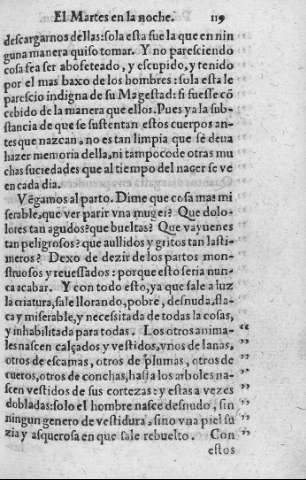 El Martes en la noche. 119
descargarnos dellas: sola esta fue la que en nin
guna manera quiso tomar. Y no paresciendo
cosa fea ser abofeteado, y escupido, y tenido
por el mas baxo de los hombres: sola esta le
parescio indigna de su Magestad: si fuesse cõ
cebido de la manera que ellos. Pues ya la sub-
stancia de que se sustentan estos cuerpos an-
tes que nazcan, no es tan limpia que se deua
hazer memoria della, ni tampoco de otras mu
chas suciedades que al tiempo del nacer se ve
en cada dia.
Vẽgamos al parto. Dime que cosa mas mi
serable, que ver parir vna muger? Que dolo-
lores tan agudos? que bueltas? Que vayuenes
tan peligrosos? que aullidos y gritos tan lasti-
meros? Dexo de dezir de los partos mons-
truosos y reuessados: porque esto seria nun-
ca acabar. Y con todo esto, ya que sale a luz
la criatura, sale llorando, pobre, desnuda, fla-
ca y miserable, y necessitada de todas la cosas,
y inhabilitada para todas. Los otros anima- “
les nascen calçados y vestidos, vnos de lanas, ”
otros de escamas, otros de plumas, otros de ”
cueros, otros de conchas, hasta los arboles na- ”
scen vestidos de sus cortezas: y estas a vezes ”
dobladas: solo el hombre nasce desnudo, sin ”
ningun genero de vestidura, sino vna piel su ”
zia y asquerosa en que sale rebuelto. Con ”
estos